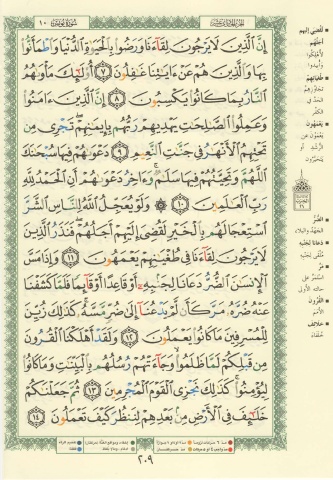 سورة يونس ١٠
إِنَّ ٱلَّذِينَ لَا يَرْجُونَ لِقَآءَنَا وَرَضُوا۟ بِٱلْحَيَوٰةِ ٱلدُّنْيَا وَٱطْمَأَنُّوا۟
بِهَا وَٱلَّذِينَ هُمْ عَنْ ءَايَـٰتِنَا غَـٰفِلُونَ ٧ أُو۟لَـٰٓئِكَ مَأْوَىٰهُمُ
ٱلنَّارُ بِمَا كَانُوا۟ يَكْسِبُونَ ٨ إِنَّ ٱلَّذِينَ ءَامَنُوا۟
وَعَمِلُوا۟ ٱلصَّـٰلِحَـٰتِ يَهْدِيهِمْ رَبُّهُم بِإِيمَـٰنِهِمْ تَجْرِى مِن
تَحْتِهِمُ ٱلْأَنْهَـٰرُ فِى جَنَّـٰتِ ٱلنَّعِيمِ ٩ دَعْوَىٰهُمْ فِيهَا سُبْحَـٰنَكَ
ٱللَّهُمَّ وَتَحِيَّتُهُمْ فِيهَا سَلَـٰمٌ وَءَاخِرُ دَعْوَىٰهُمْ أَنِ ٱلْحَمْدُ لِلَّهِ
رَبِّ ٱلْعَـٰلَمِينَ ١٠ ۞ وَلَوْ يُعَجِّلُ ٱللَّهُ لِلنَّاسِ ٱلشَّرَّ
ٱسْتِعْجَالَهُم بِٱلْخَيْرِ لَقُضِىَ إِلَيْهِمْ أَجَلُهُمْ فَنَذَرُ ٱلَّذِينَ
لَا يَرْجُونَ لِقَآءَنَا فِى طُغْيَـٰنِهِمْ يَعْمَهُونَ ١١ وَإِذَا مَسَّ
ٱلْإِنسَـٰنَ ٱلضُّرُّ دَعَانَا لِجَنۢبِهِۦٓ أَوْ قَاعِدًا أَوْ قَآئِمًا فَلَمَّا كَشَفْنَا
عَنْهُ ضُرَّهُۥ مَرَّ كَأَن لَّمْ يَدْعُنَآ إِلَىٰ ضُرٍّ مَّسَّهُۥ كَذَٰلِكَ زُيِّنَ
لِلْمُسْرِفِينَ مَا كَانُوا۟ يَعْمَلُونَ ١٢ وَلَقَدْ أَهْلَكْنَا ٱلْقُرُونَ
مِن قَبْلِكُمْ لَمَّا ظَلَمُوا۟ وَجَآءَتْهُمْ رُسُلُهُم بِٱلْبَيِّنَـٰتِ وَمَا كَانُوا۟
لِيُؤْمِنُوا۟ كَذَٰلِكَ نَجْزِى ٱلْقَوْمَ ٱلْمُجْرِمِينَ ١٣ ثُمَّ جَعَلْنَـٰكُمْ
خَلَـٰٓئِفَ فِى ٱلْأَرْضِ مِنۢ بَعْدِهِمْ لِنَنظُرَ كَيْفَ تَعْمَلُونَ ١٤
لقضي إليهم
أجلهم
طغيانهم
يعمهون
الضر
دعانا لجنبه
مر
القرون
الأمم
خلائف
٢٠٩